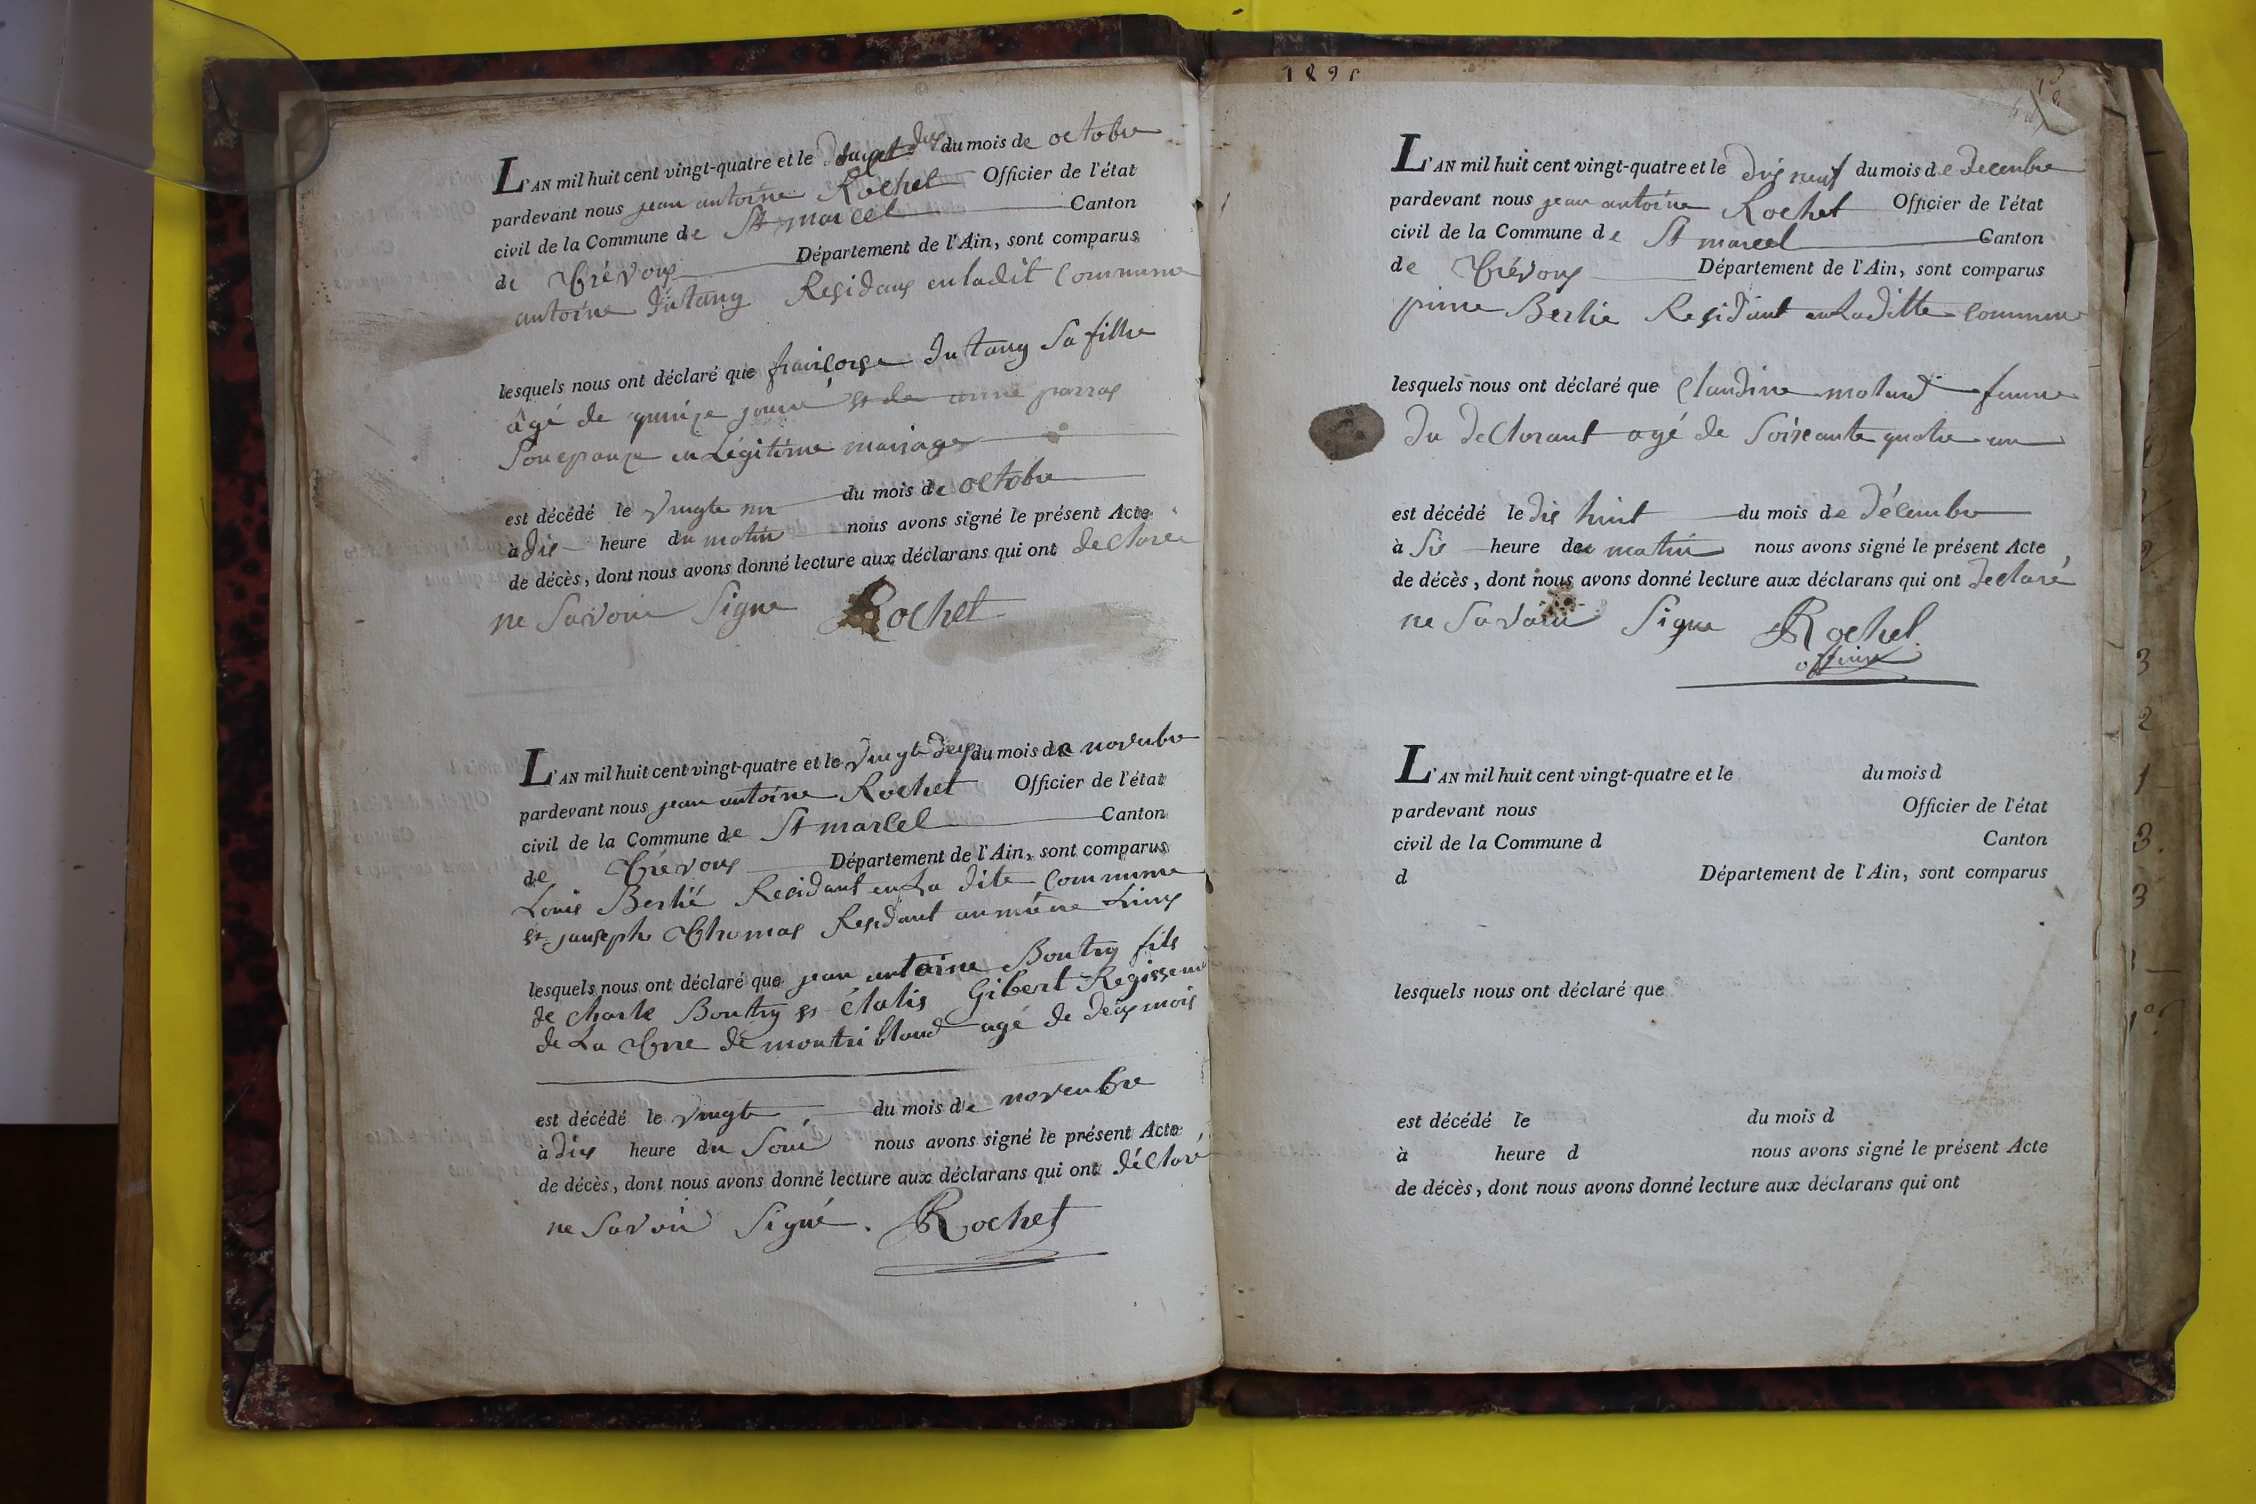 L'AN mil huit cent vingt-quatre et le du mois de octobre
pardevant nous jean antoine Rochet Officier de l'état
civil de la Commune de St marcel Canton
de Trévoux Département de l'Ain, sont comparus
antoine dutang Residans en ladit Commune
lesquels nous ont déclaré que françoise dutang Sa fille
âgé de quinze jours et de anne parras
Son epouze en Légitime mariage
est décédé le vingte un du mois de octobre
à dis heure du matin nous avons signé le présent Acte
de décès, dont nous avons donné lecture aux déclarans qui ont declaré
ne Savoir Signe Rochet
L'AN mil huit cent vingt-quatre et le vingte deux du mois de novembre
pardevant nous jean antoine Rochet Officier de l'état
civil de la Commune de St marcel Canton
de Trévoux Département de l'Ain, sont comparus
Louis Berlié Residant en La dite Commune
et jauseph Thomas Residant au même
lesquels nous ont déclaré que jean antoine Boutry fils
de charle Boutry et Gibert Regisseur
de La Terre de montribloud agé de deux mois
est décédé le vingte du mois de novembre
à dix heure du Soir nous avons signé le présent Acte
de décès, dont nous avons donné lecture aux déclarans qui ont déclaré
ne Savoir Signé. Rochet
L'AN mil huit cent vingt-quatre et le dis neuf du mois de decembre
pardevant nous jean antoine Rochet Officier de l'état
civil de la Commune de St marcel Canton
de Trévoux Département de l'Ain, sont comparus
pierre Berlie Residant en Laditte Commune
lesquels nous ont déclaré que Claudine molard femme
du declarant agé de Soixante quatre an
est décédé le dis huit du mois de décembre
à Sis heure du matin nous avons signé le présent Acte
de décès, dont nous avons donné lecture aux déclarans qui ont declaré
ne Savoir Signe Rochet
officier
L'AN mil huit cent vingt-quatre et le du mois d
pardevant nous Officier de l'état
civil de la Commune d Canton
d Département de l'Ain, sont comparus
lesquels nous ont déclaré que
est décédé le du mois d
à heure d nous avons signé le présent Acte
de décès, dont nous avons donné lecture aux déclarans qui ont